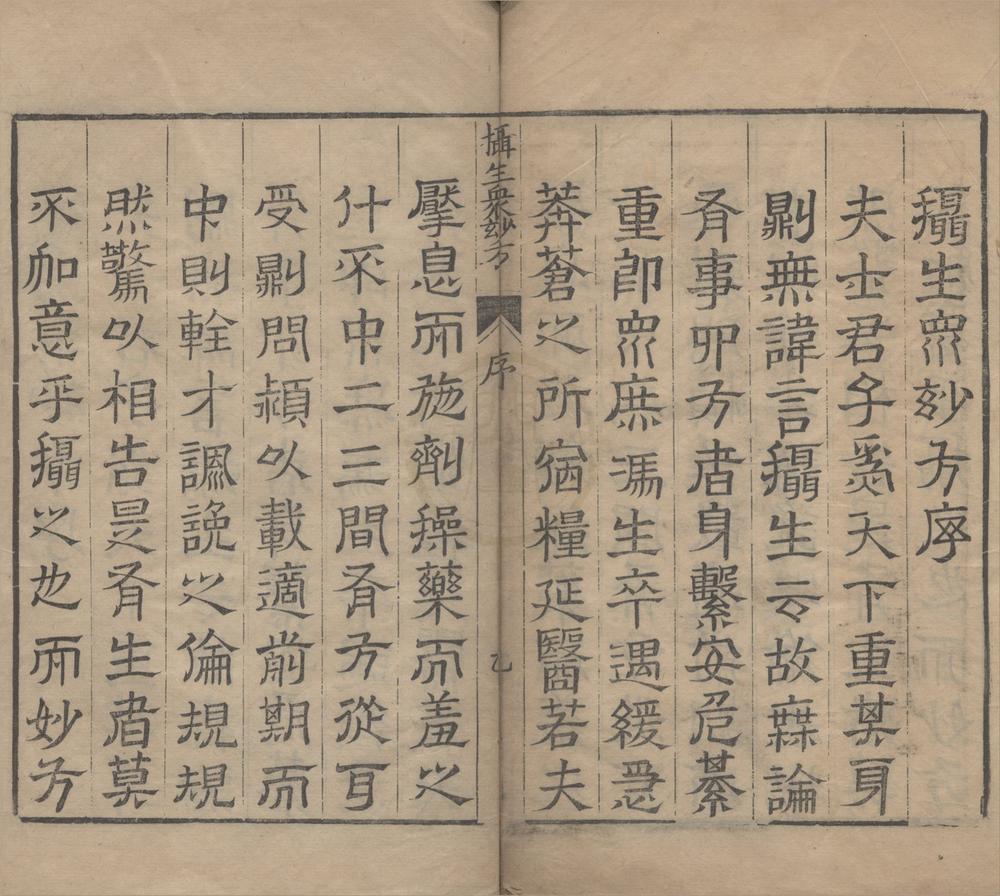 攝生眾妙方序
夫士君子爲天下重其身
則無諱言攝生云故論
有事四方者身繫安危綦
重即眾庶馮生卒遇緩急
莽蒼之所宿糧延醫若夫
攝生衆妙方 序 乙
擪息而施劑操藥而羞之
什不中二三間有方從耳
受則問以載適前期而
中則輇才謏說之倫規規
然驚以相告是有生者莫
不加意乎攝之也而妙方